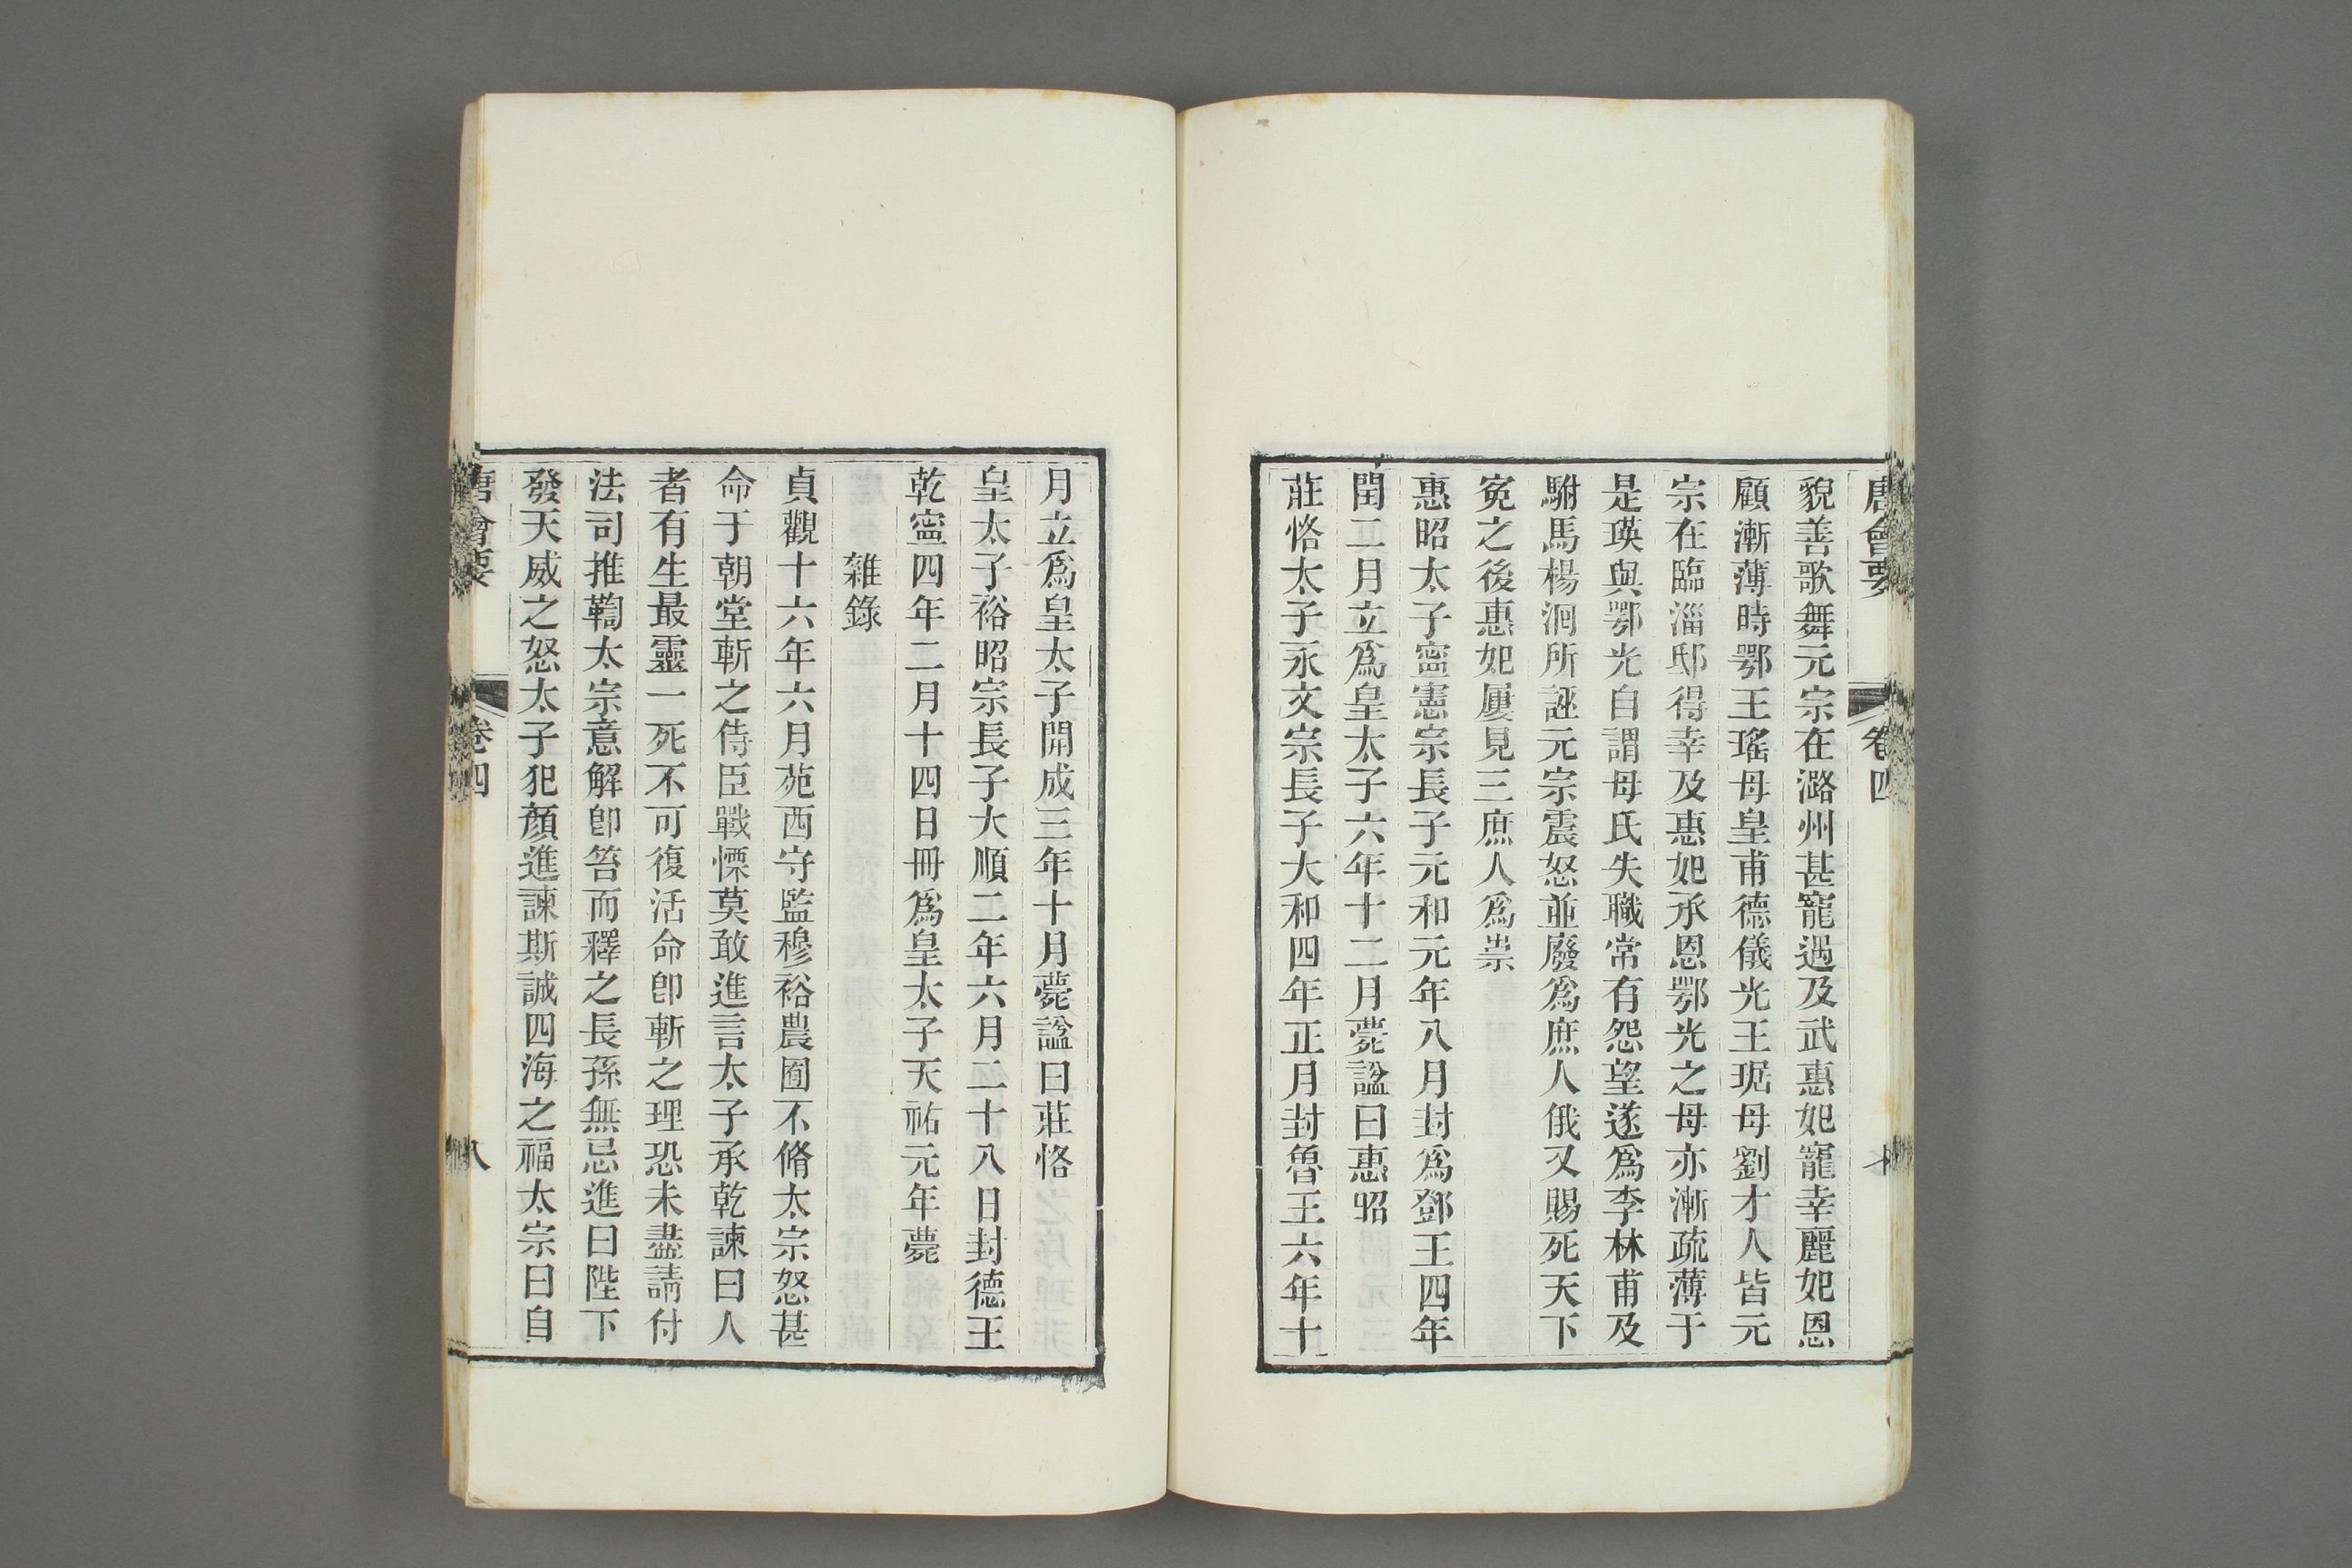 唐會要 卷四 七
貌善歌舞元宗在潞州甚寵遇及武惠妃寵幸麗妃恩
顧漸薄時鄂王瑤母皇甫德儀光王琚母劉才人皆元
宗在臨淄邸得幸及惠妃承恩鄂光之母亦漸疏薄于
是瑛與鄂光自謂母氏失職常有怨望遂爲李林甫及
駙馬楊洄所誣元宗震怒並廢爲庶人俄又賜死天下
寃之後惠妃屢見三庶人爲祟
惠昭太子寧憲宗長子元和元年八月封爲鄧王四年
閏二月立爲皇太子六年十二月薨諡曰惠昭
莊恪太子永文宗長子大和四年正月封魯王六年十
月立爲皇太子開成三年十月薨諡曰莊恪
皇太子裕昭宗長子大順二年六月二十八日封德王
乾寧四年二月十四日冊爲皇太子天祐元年薨
雜錄
貞觀十六年六月苑西守監穆裕農囿不脩太宗怒甚
命于朝堂斬之侍臣戰慄莫敢進言太子承乾諫曰人
者有生最靈一死不可復活命卽斬之理恐未盡請付
法司推鞫太宗意解卽笞而釋之長孫無忌進曰陛下
發天威之怒太子犯顏進諫斯誠四海之福太宗曰自
唐會要 卷四 八